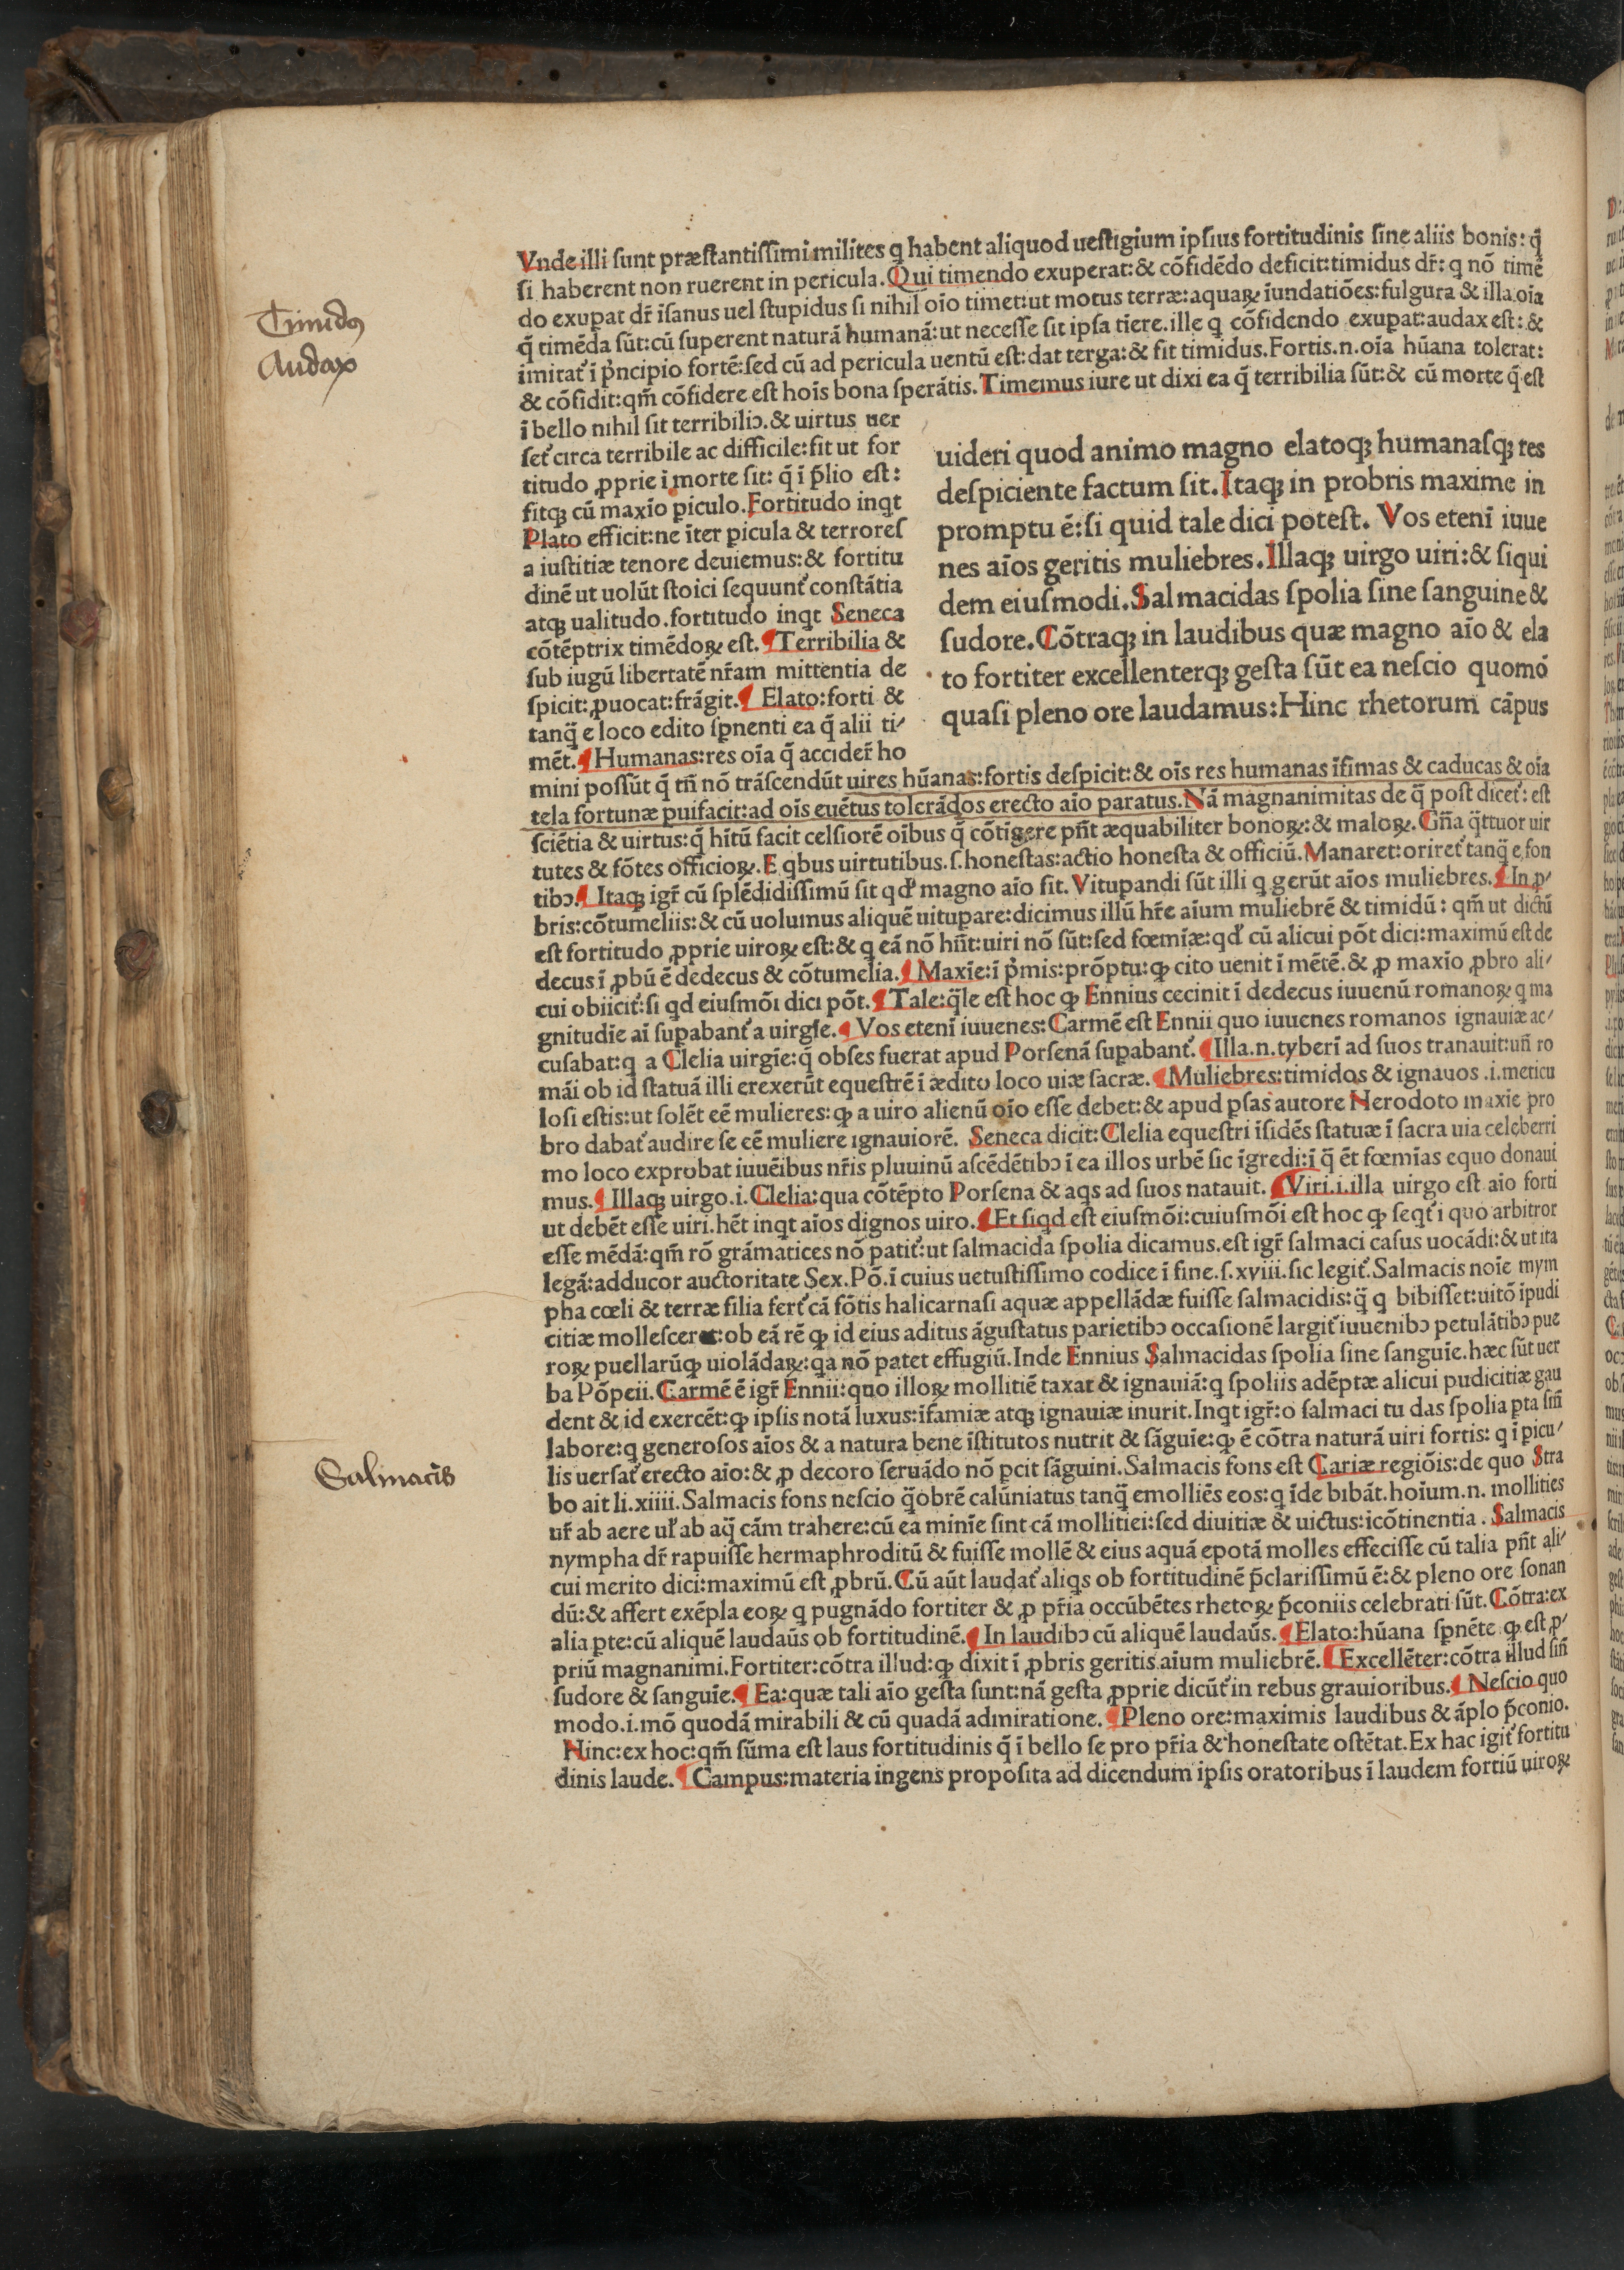 Vnde illi ſunt præſtantiſſimi milites q̃ habent aliquod ueſtigium ipſius fortitudinis ſine aliis bonis: q̃
ſi haberent non ruerent in pericula. Qui timendo exuperat: & cõfidẽdo deficit: timidus dr̃: q nõ timẽ
do exupat dr̃ ĩſanus uel ſtupidus ſi nihil oĩo timet: ut motus terræ: aquaꝝ ĩundatiões: fulgura & illa oĩa
q̃ timẽda ſũt: cũ ſuperent naturã humanã: ut neceſſe ſit ipſa tĩere. ille q cõfidendo exuꝑat: audax eſt: &
imitat̃ ĩ p̃ncipio fortẽ: ſed cũ ad pericula uentũ eſt: dat terga: & fit timidus. Fortis .n. oĩa hũana tolerat:
& cõfidit: qm̃ cõfidere eſt hoĩs bona ſperãtis. Timemus iure ut dixi ea q̃ terribilia ſũt: & cũ morte q̃ eſt
ĩ bello nihil ſit terribiliꝰ. & uirtus uer
ſet̃ circa terribile ac difficile: fit ut for
titudo ꝓprie ĩ morte ſit: q̃ ĩ p̃lio eſt:
fitqꝫ cũ maxĩo ꝑiculo. Fortitudo inqt
Plato efficit: ne ĩter ꝑicula & terrores
a iuſtitiæ tenore deuiemus: & fortitu
dinẽ ut uolũt ſtoici ſequunt̃ conſtãtia
atqꝫ ualitudo. fortitudo inqt Seneca
cõtẽptrix timẽdoꝝ eſt. ¶ Terribilia &
ſub iugũ libertatẽ nr̃am mittentia de
ſpicit: ꝓuocat: frãgit. ¶ Elato: forti &
tanq̃ e loco edito ſꝑnenti ea q̃ alii ti/
mẽt. ¶ Humanas: res oĩa q̃ accider̃ ho
uideri quod animo magno elatoqꝫ humanaſqꝫ res
deſpiciente factum ſit. Itaqꝫ in probris maxime in
promptu ẽ: ſi quid tale dici poteſt. Vos etenĩ iuue
nes aĩos geritis muliebres. Illaqꝫ uirgo uiri: & ſiqui
dem eiuſmodi. Salmacidas ſpolia ſine ſanguine &
ſudore. Cõtraqꝫ in laudibus quæ magno aĩo & ela
to fortiter excellenterqꝫ geſta ſũt ea neſcio quomõ
quaſi pleno ore laudamus: Hinc rhetorum cãpus
mini poſſũt q̃ tñ nõ trãſcendũt uires hũanas: fortis deſpicit: & oĩs res humanas ĩfimas & caducas & oĩa
tela fortunæ ꝑuifacit: ad oĩs euẽtus tolerãdos erecto aĩo paratus. Nã magnanimitas de q̃ poſt dicet̃: eſt
ſciẽtia & uirtus: q̃ hĩtũ facit celſiorẽ oĩbus q̃ cõtĩgere pñt æquabiliter bonoꝝ: & maloꝝ. Gña q̃ttuor uir
tutes & fõtes officioꝝ. E qbus uirtutibus .ſ. honeſtas: actio honeſta & officiũ. Manaret: oriret̃ tanq̃ e fon
tibꝰ. ¶ Itaqꝫ igr̃ cũ ſplẽdidiſſimũ ſit qd̃ magno aĩo fit. Vitupandi ſũt illi q gerũt aĩos muliebres. ¶ In ꝓ/
bris: cõtumeliis: & cũ uolumus aliquẽ uitupare: dicimus illũ hr̃e aĩum muliebrẽ & timidũ: qm̃ ut dictũ
eſt fortitudo ꝓprie uiroꝝ eſt: & q eã nõ hñt: uiri nõ ſũt: ſed fœmĩæ: qd̃ cũ alicui põt dici: maximũ eſt de
decus ĩ ꝓbũ ẽ dedecus & cõtumelia. ¶ Maxĩe: ĩ p̃mis: prõptu: ꝙ cito uenit ĩ mẽtẽ. & ꝓ maxĩo ꝓbro ali/
cui obiicit̃: ſi qd eiuſmõi dici põt. ¶ Tale: q̃le eſt hoc ꝙ Ennius cecinit ĩ dedecus iuuenũ romanoꝝ q ma
gnitudĩe aĩ ſupabant̃ a uirgĩe. ¶ Vos etenĩ iuuenes: Carmẽ eſt Ennii quo iuuenes romanos ignauiæ ac/
cuſabat: q a Clelia uirgĩe: q̃ obſes fuerat apud Porſenã ſupabant̃. ¶ Illa .n. tyberĩ ad ſuos tranauit: uñ ro
mãi ob id ſtatuã illi erexerũt equeſtrẽ ĩ ædito loco uiæ ſacræ. ¶ Muliebres: timidos & ignauos .i. meticu
loſi eſtis: ut ſolẽt eẽ mulieres: ꝙ a uiro alienũ oĩo eſſe debet: & apud ꝑſas autore Herodoto maxĩe pro
bro dabat̃ audire ſe eẽ muliere ignauiorẽ. Seneca dicit: Clelia equeſtri ĩſidẽs ſtatuæ ĩ ſacra uia celeberri
mo loco exprobat iuuẽibus nr̃is pluuinũ aſcẽdẽtibꝰ ĩ ea illos urbẽ ſic ĩgredi: ĩ q̃ ẽt fœmĩas equo donaui
mus. ¶ Illaqꝫ uirgo .i. Clelia: qua cõtẽpto Porſena & aqs ad ſuos natauit. ¶ Viri .i. illa uirgo eſt aĩo forti
ut debẽt eſſe uiri. hẽt inqt aĩos dignos uiro. ¶ Et ſiqd eſt eiuſmõi: cuiuſmõi eſt hoc ꝙ ſeqt̃ ĩ quo arbitror
eſſe mẽdã: qm̃ rõ grãmatices nõ patit̃: ut ſalmacida ſpolia dicamus. eſt igr̃ ſalmaci caſus uocãdi: & ut ita
legã: adducor auctoritate Sex. Põ. ĩ cuius uetuſtiſſimo codice ĩ fine .ſ. xviii. ſic legit̃. Salmacis noĩe nym
pha cœli & terræ filia fert̃ cã fõtis halicarnaſi aquæ appellãdæ fuiſſe ſalmacidis: q̃ q bibiſſet: uitõ ĩpudi
citiæ molleſceret: ob eã rẽ ꝙ id eius aditus ãguſtatus parietibꝰ occaſionẽ largit̃ iuuenibꝰ petulãtibꝰ pue
roꝝ puellarũꝙ uiolãdaꝝ: qa nõ patet effugiũ. Inde Ennius Salmacidas ſpolia ſine ſanguĩe. hæc ſũt uer
ba Põpeii. Carmẽ ẽ igr̃ Ennii: quo illoꝝ mollitiẽ taxat & ignauiã: q ſpoliis adẽptæ alicui pudicitiæ gau
dent & id exercẽt: ꝙ ipſis notã luxus: ĩfamiæ atqꝫ ignauiæ inurit. Inqt igr̃: o ſalmaci tu das ſpolia ꝑta ſiñ
labore: q generoſos aĩos & a natura bene ĩſtitutos nutrit & ſãguĩe: ꝙ ẽ cõtra naturã uiri fortis: q ĩ ꝑicu/
lis uerſat̃ erecto aĩo: & ꝓ decoro ſeruãdo nõ ꝑcit ſãguini. Salmacis fons eſt Cariæ regiõis: de quo Stra
bo ait li. xiiii. Salmacis fons neſcio q̃obrẽ calũniatus tanq̃ emolliẽs eos: q ĩde bibãt. hoĩum .n. mollities
ur̃ ab aere ul̃ ab aq̃ cãm trahere: cũ ea minĩe ſint cã mollitiei: ſed diuitiæ & uictus: ĩcõtinentia. Salmacis
nympha dr̃ rapuiſſe hermaphroditũ & fuiſſe mollẽ & eius aquã epotã molles effeciſſe cũ talia pñt ali/
cui merito dici: maximũ eſt ꝓbrũ. Cũ aũt laudat̃ aliqs ob fortitudinẽ p̃clariſſimũ ẽ: & pleno ore ſonan
dũ: & affert exẽpla eoꝝ q pugnãdo fortiter & ꝓ pr̃ia occũbẽtes rhetoꝝ p̃coniis celebrati ſũt. Cõtra: ex
alia ꝑte: cũ aliquẽ laudaũs ob fortitudinẽ. ¶ In laudibꝰ cũ aliquẽ laudaũs. ¶ Elato: hũana ſꝑnẽte ꝙ eſt ꝓ/
priũ magnanimi. Fortiter: cõtra illud: ꝙ dixit ĩ ꝓbris geritis aĩum muliebrẽ. ¶ Excellẽter: cõtra illud ſiñ
ſudore & ſanguĩe. ¶ Ea: quæ tali aĩo geſta ſunt: nã geſta ꝓprie dicũt̃ in rebus grauioribus. ¶ Neſcio quo
modo .i. mõ quodã mirabili & cũ quadã admiratione. ¶ Pleno ore: maximis laudibus & ãplo p̃conio.
Hinc: ex hoc: qm̃ ſũma eſt laus fortitudinis q̃ ĩ bello ſe pro pr̃ia & honeſtate oſtẽtat. Ex hac igit̃ fortitu
dinis laude. ¶ Campus: materia ingens propoſita ad dicendum ipſis oratoribus ĩ laudem fortiũ uiroꝝ
Timidus
Audax
Salmacis